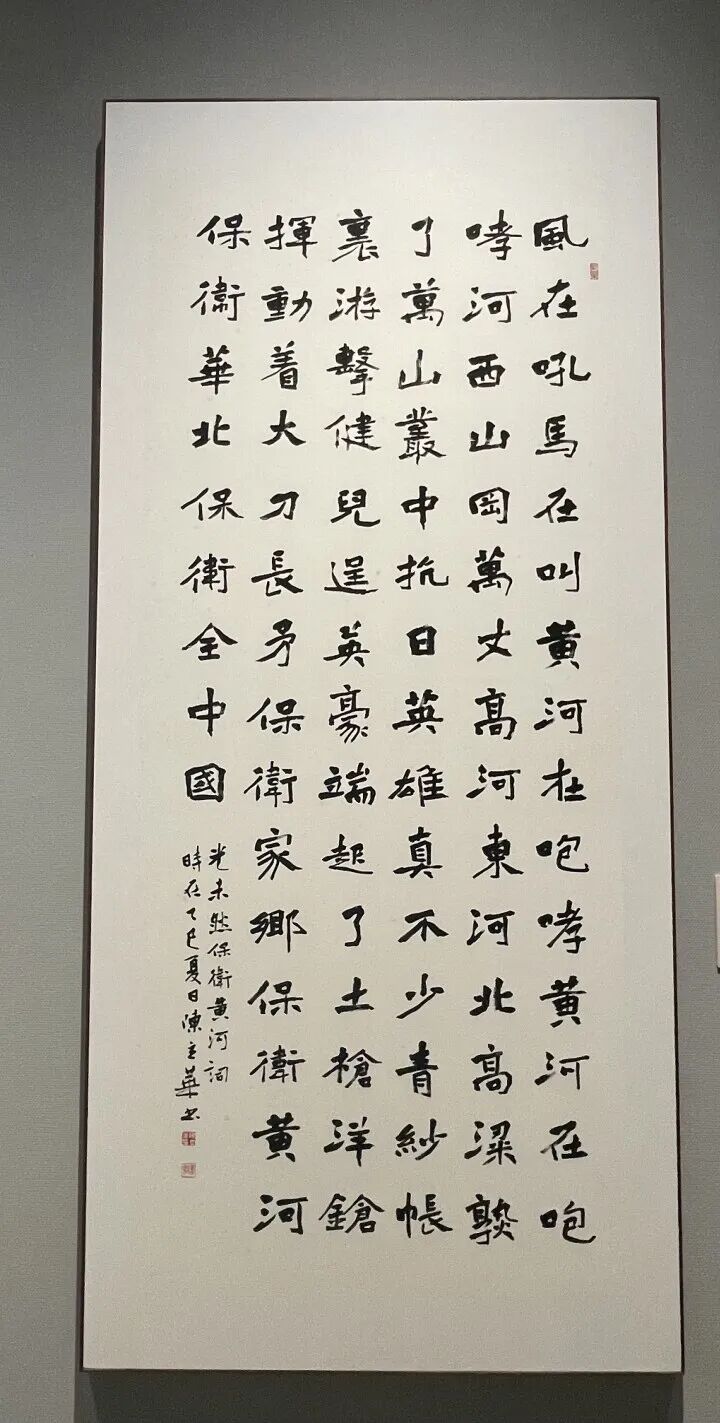 風在吼馬在叫黃河在咆哮黃河在咆
哮河西山岡萬丈高河東河北高粱熟
了萬山叢中抗日英雄真不少青紗帳
裏游擊健兒逞英豪端起了土槍洋鎗
揮動着大刀長矛保衛家鄉保衛黃河
保衛華北保衛全中國
光未然保衛黃河詞
時在乙巳夏日陳立華書